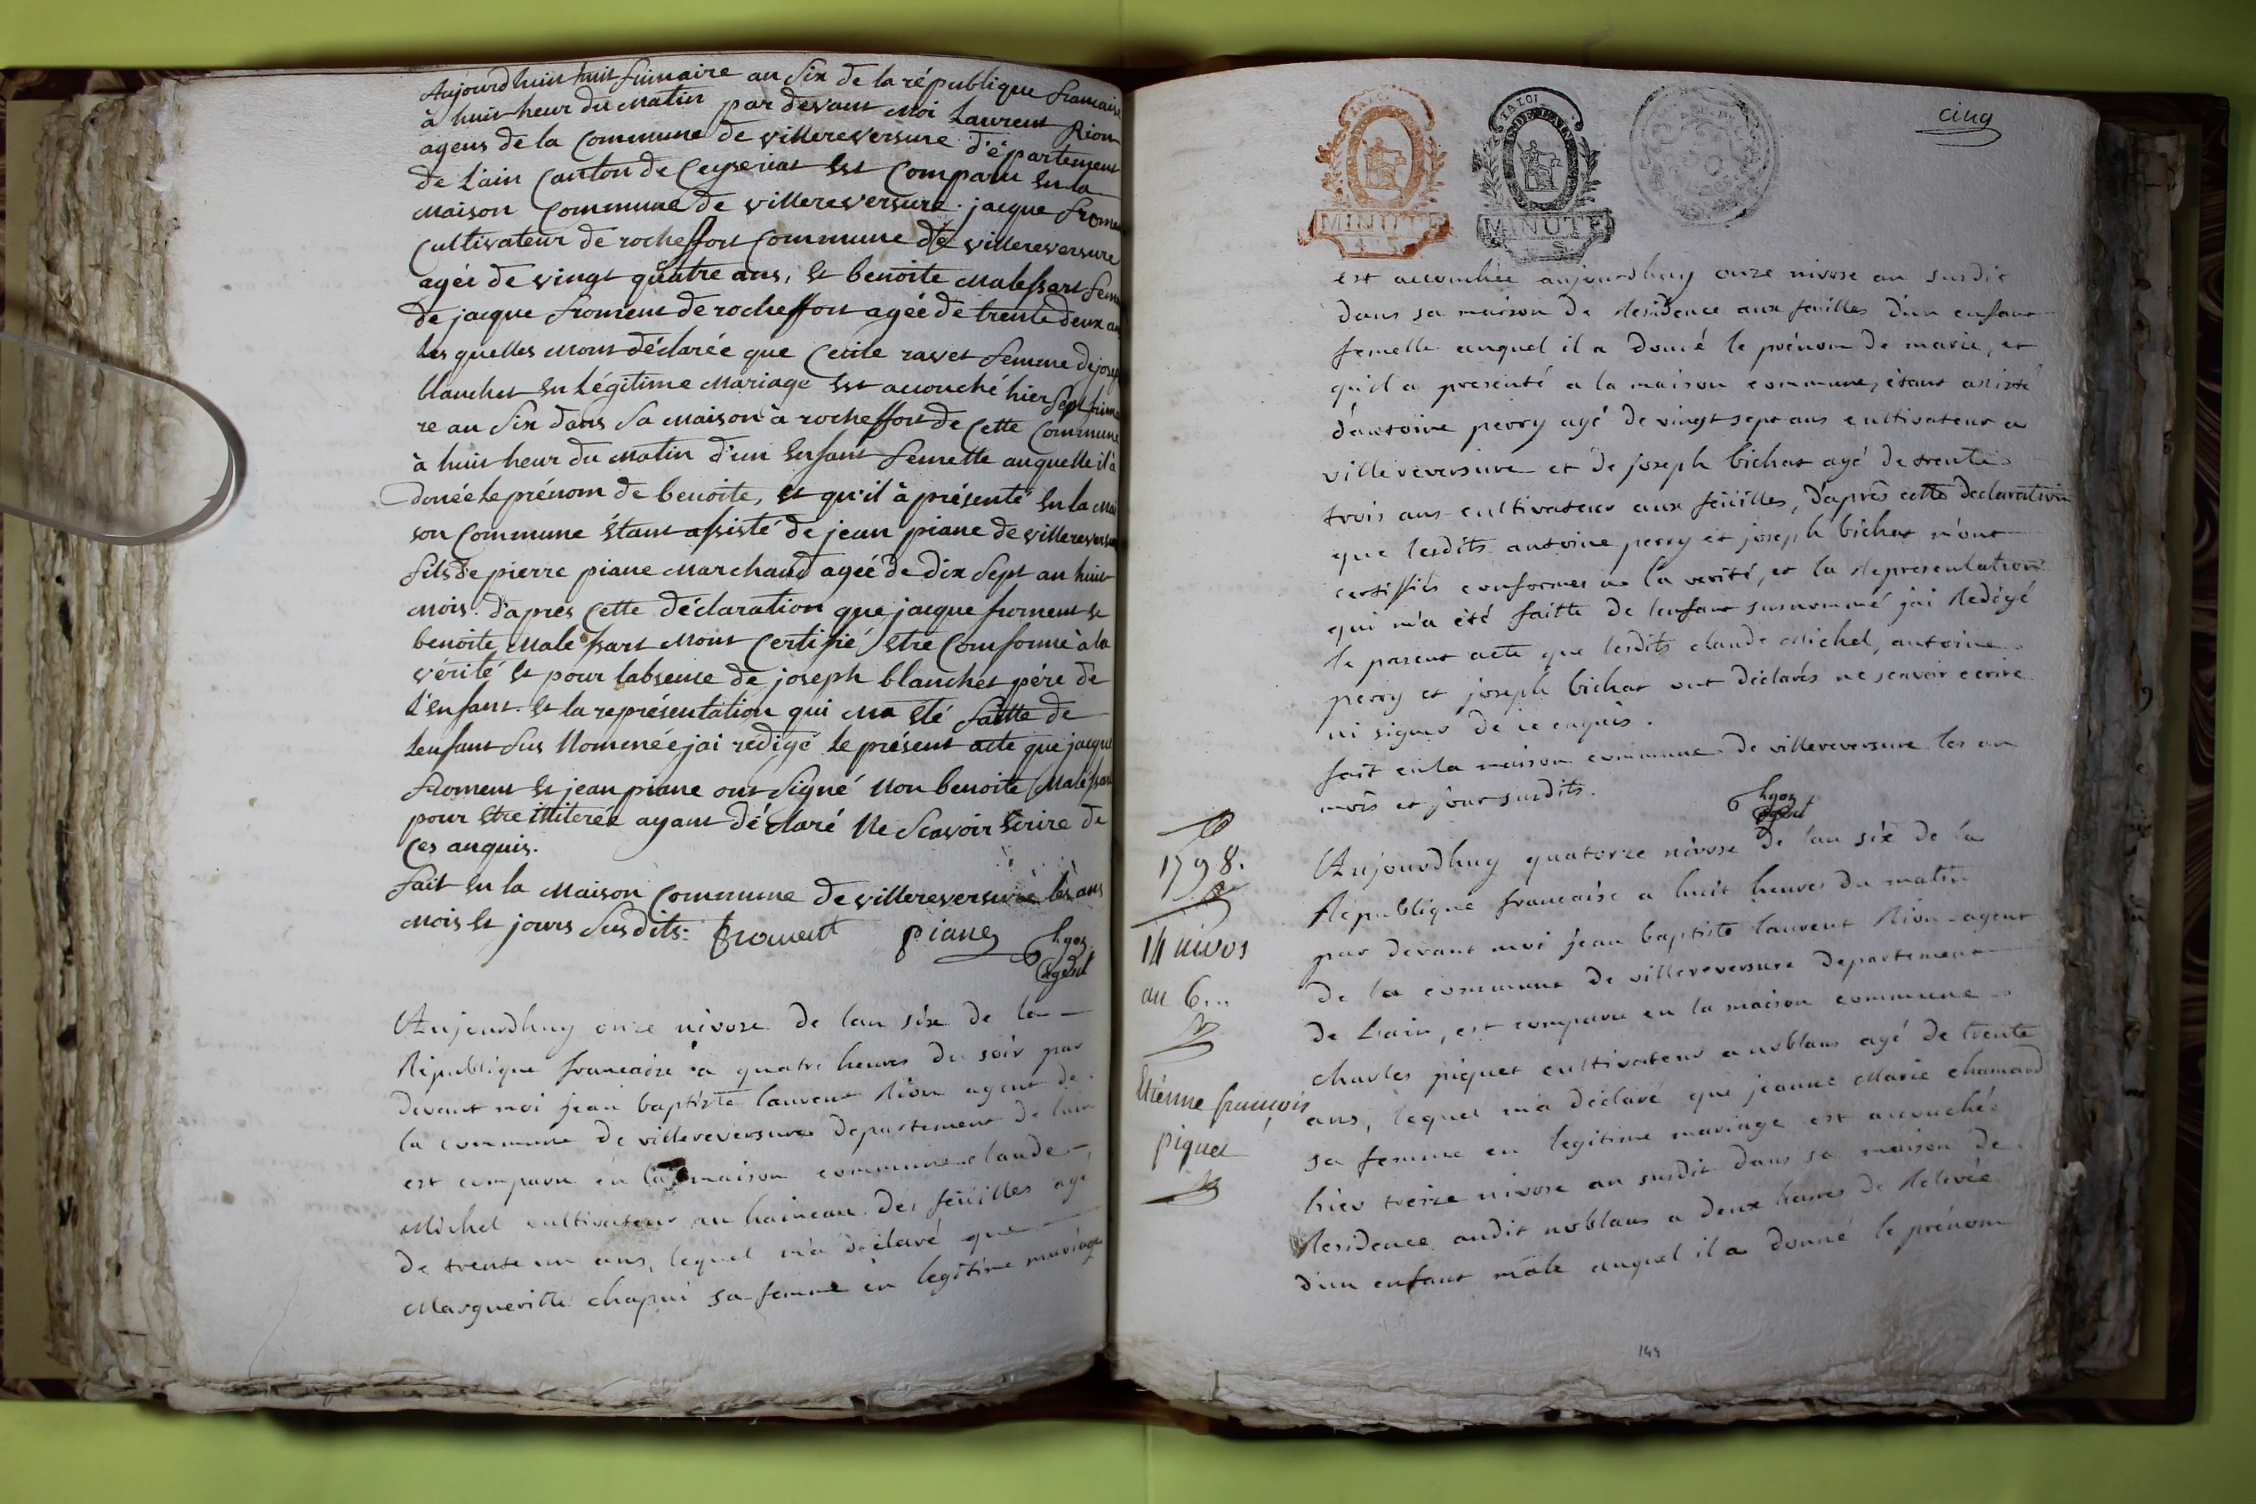 Aujourdhuit huit frimaire an six de la république francaise
à huit heur du matin par devant moi Laurent Rion
agens de la commune de villereversure d'épartement
de L'ain canton de Ceyseriat est comparu en la
maison commune de villereversure. jacque froment
cultivateur de rocheffort commune de villereversure
agée de vingt quatre ans, et benoite malessart femme
de jacque froment de rocheffort agée de trente deux ans
les quelles mont déclarée que Cecile ravet femme de joseph
blanchet en légitime mariage est accouché hier sept frimai
re an six dans sa maison à rocheffort de cette commune
à huit heur du matin d'un enfant femelle auquelle il à
donée le prénom de benoite, et qu'il à présenté en la mai
son commune étant assisté de jean piane de villereversure
fils de pierre piane marchand agée de dix sept an huit
mois. d'apres cette déclaration que jacque froment et
benoite malessart mont certifié être conforme à la
vérité et pour labsence de joseph blanchet pére de
l'enfant. et la représentation qui ma été faitte de
lenfant sus nomenée jai redigé le présent acte que jacque
froment et jean piane ont signé non benoite malessart
pour etre illiterée ayant déclaré ne scavoir écrire de
ces anquis.
fait en la maison commune de villereversure les ans
mois et jours susdits. froment piane
agent
Aujourdhuy onze nivose de lan six de la
République francaise a quatre heures du soir par
devant moi jean baptiste laurent Rion agent de
la commune de villereversure departement de lain
est comparu en la maison commune claude
Michel cultivateur au haineau des feüilles agé
de trente un ans, lequel m'a déclaré que
Margueritte chapui sa femme en legitime mariage
cinq
LA LOI
MINUTE
MINUTE
est accouchée aujourdhuy onze nivose an susdit
dans sa maison de Residence aux feuilles d'un enfant
femelle auquel il a donné le prénom de marie, et
qu'il a presenté a la maison commune, étant assisté
d'antoine perry agé de vingt sept ans cultivateur a
villereversure et de joseph bichat agé de trente
trois ans cultivateur aux feüilles, d'après cette declaration
que lesdits antoine perry et joseph bichat m'ont
certiffiés conformes a la verité, et la Representation
qui m'a été faitte de lenfant susnommé jai Redigé
le present acte que lesdits claude Michel, antoine
perry et joseph bichat ont déclarés ne scavoir ecrire
ni signer de ce enquis.
fait en la maison commune de villereversure les an
mois et jour susdits.
agent
1798.
14 nivos
an 6...
Etiénne françois
piquet
Aujourdhuy quatorze nivose de lan six de la
République francaise a huit heures du matin
par devant moi jean baptiste laurent Rion agent
de la commune de villereversure departement
de Lain, est comparu en la maison commune
charles piquet cultivateur a noblans agé de trente
ans, lequel m'a déclaré que jeanne Marie chamard
sa femme en legitime mariage est accouchée
hier treize nivose an susdit dans sa maison de
Residence audit noblans a deux heures de Relevée
d'un enfant mâle auquel il a donné le prénom
144